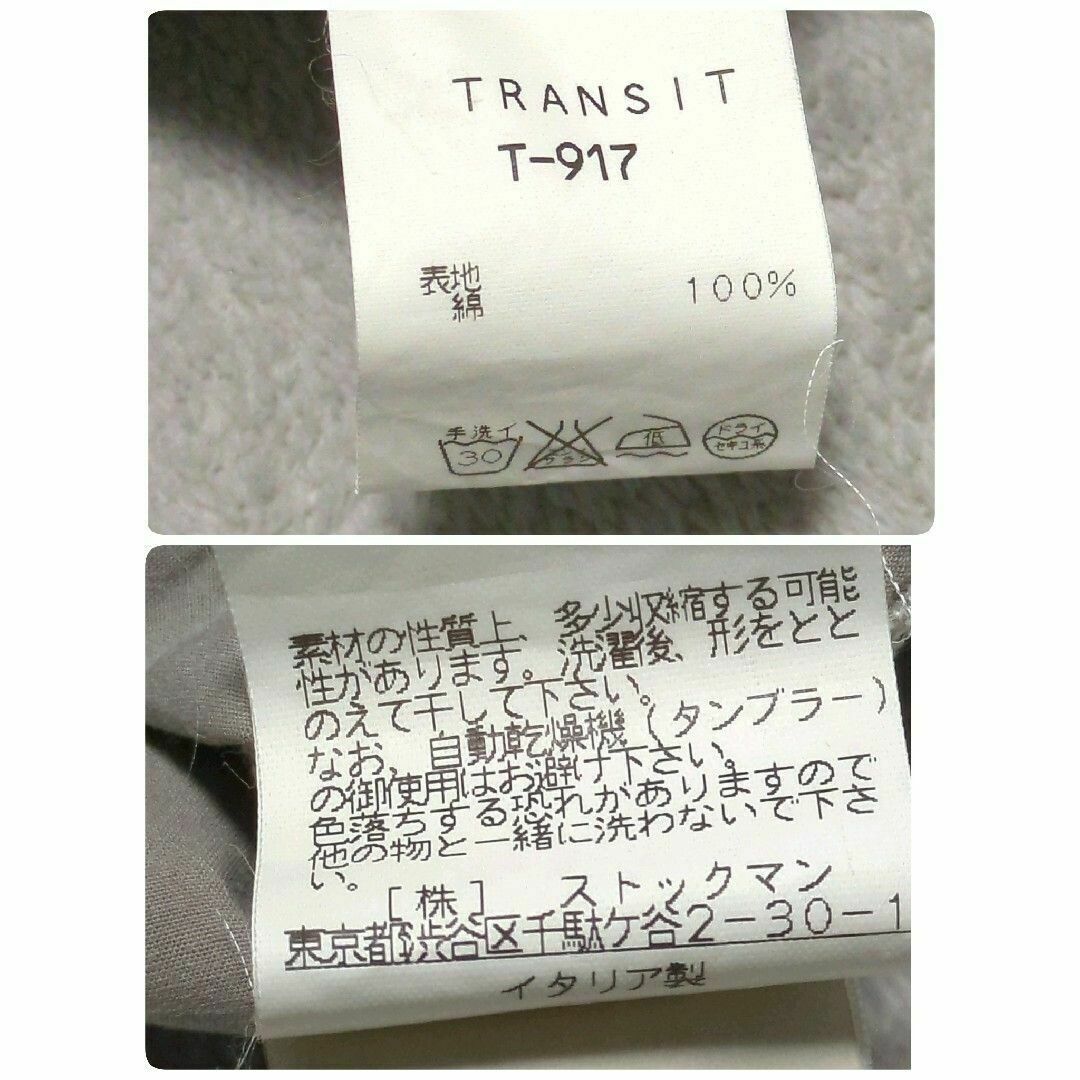 TRANSIT
T-917
表地
綿 100%
手洗イ
30
エンソ
サラシ
低
ドライ
セキユ系
素材の性質上、多少収縮する可能
性があります。洗濯後、形をとと
のえて干して下さい。
なお、自動乾燥機(タンブラー)
の御使用はお避け下さい。
色落ちする恐れがありますので
他の物と一緒に洗わないで下さ
い。
[株] ストックマン
東京都渋谷区千駄ケ谷2-30-1
イタリア製